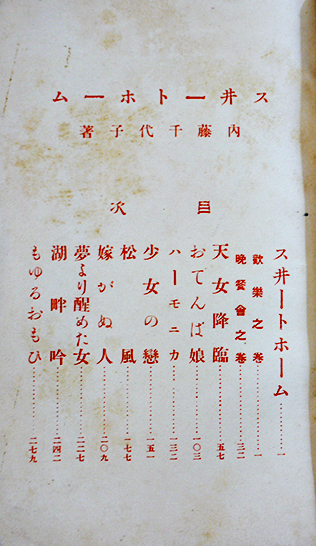 スヰートホーム
内藤千代子著
目次
スヰートホーム……………一
歡樂之巻……………一
晩餐會之巻……………三二
天女降臨……………五七
おてんば娘……………一〇三
ハーモニカ……………一三二
少女の戀……………一五一
松風……………一七七
嫁がぬ人……………二〇九
夢より醒めた女……………二二七
湖畔吟……………二四二
もゆるおもひ……………二七九